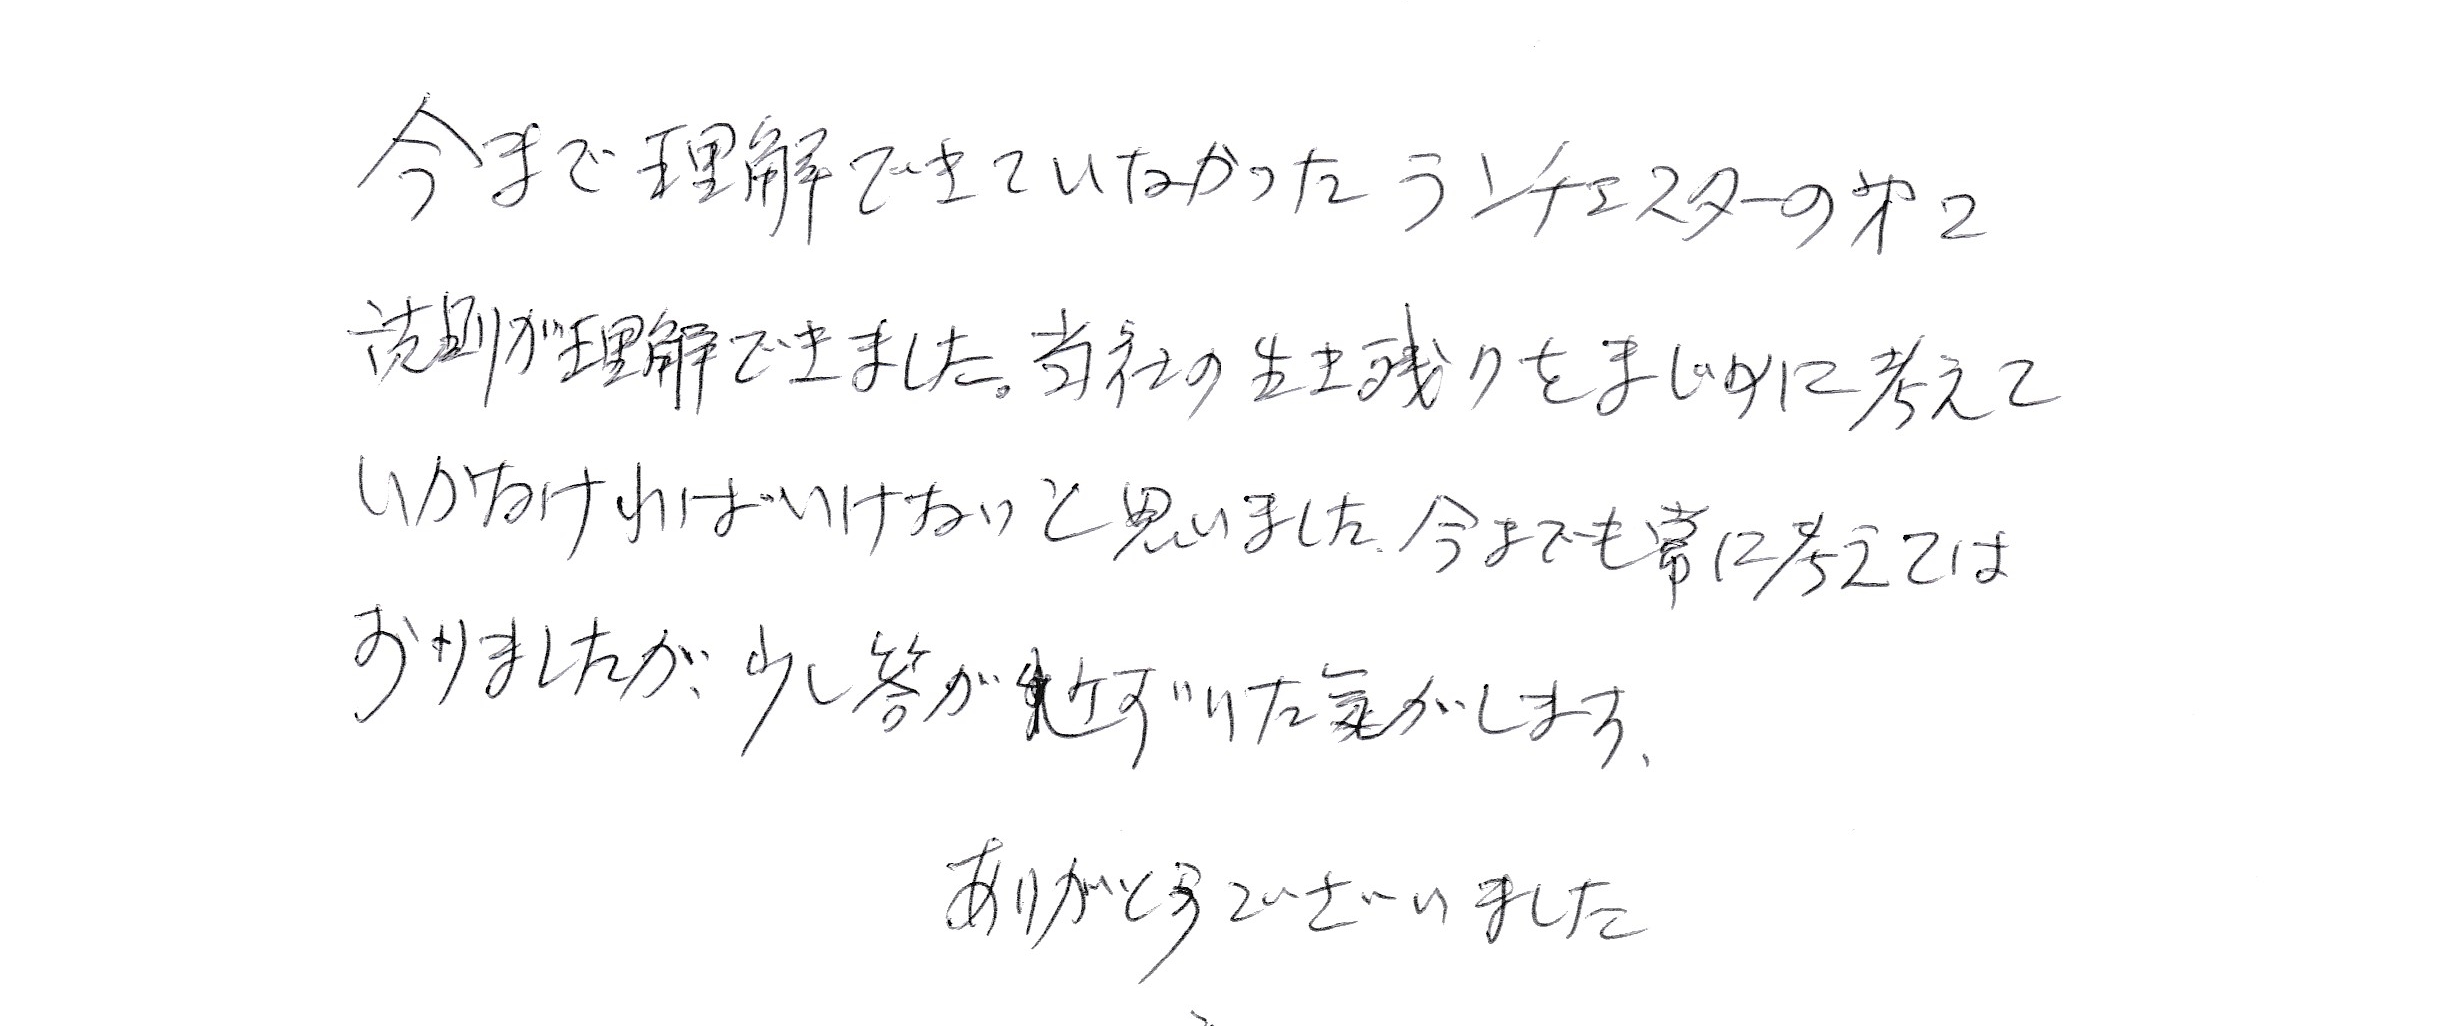 今まで理解できていなかったランチェスターの第2
法則が理解できました。当社の生き残りをまじめに考えて
いかなければいけないと思いました。今までも常に考えては
おりましたが、少し答が近ずいた気がします、
ありがとうございました